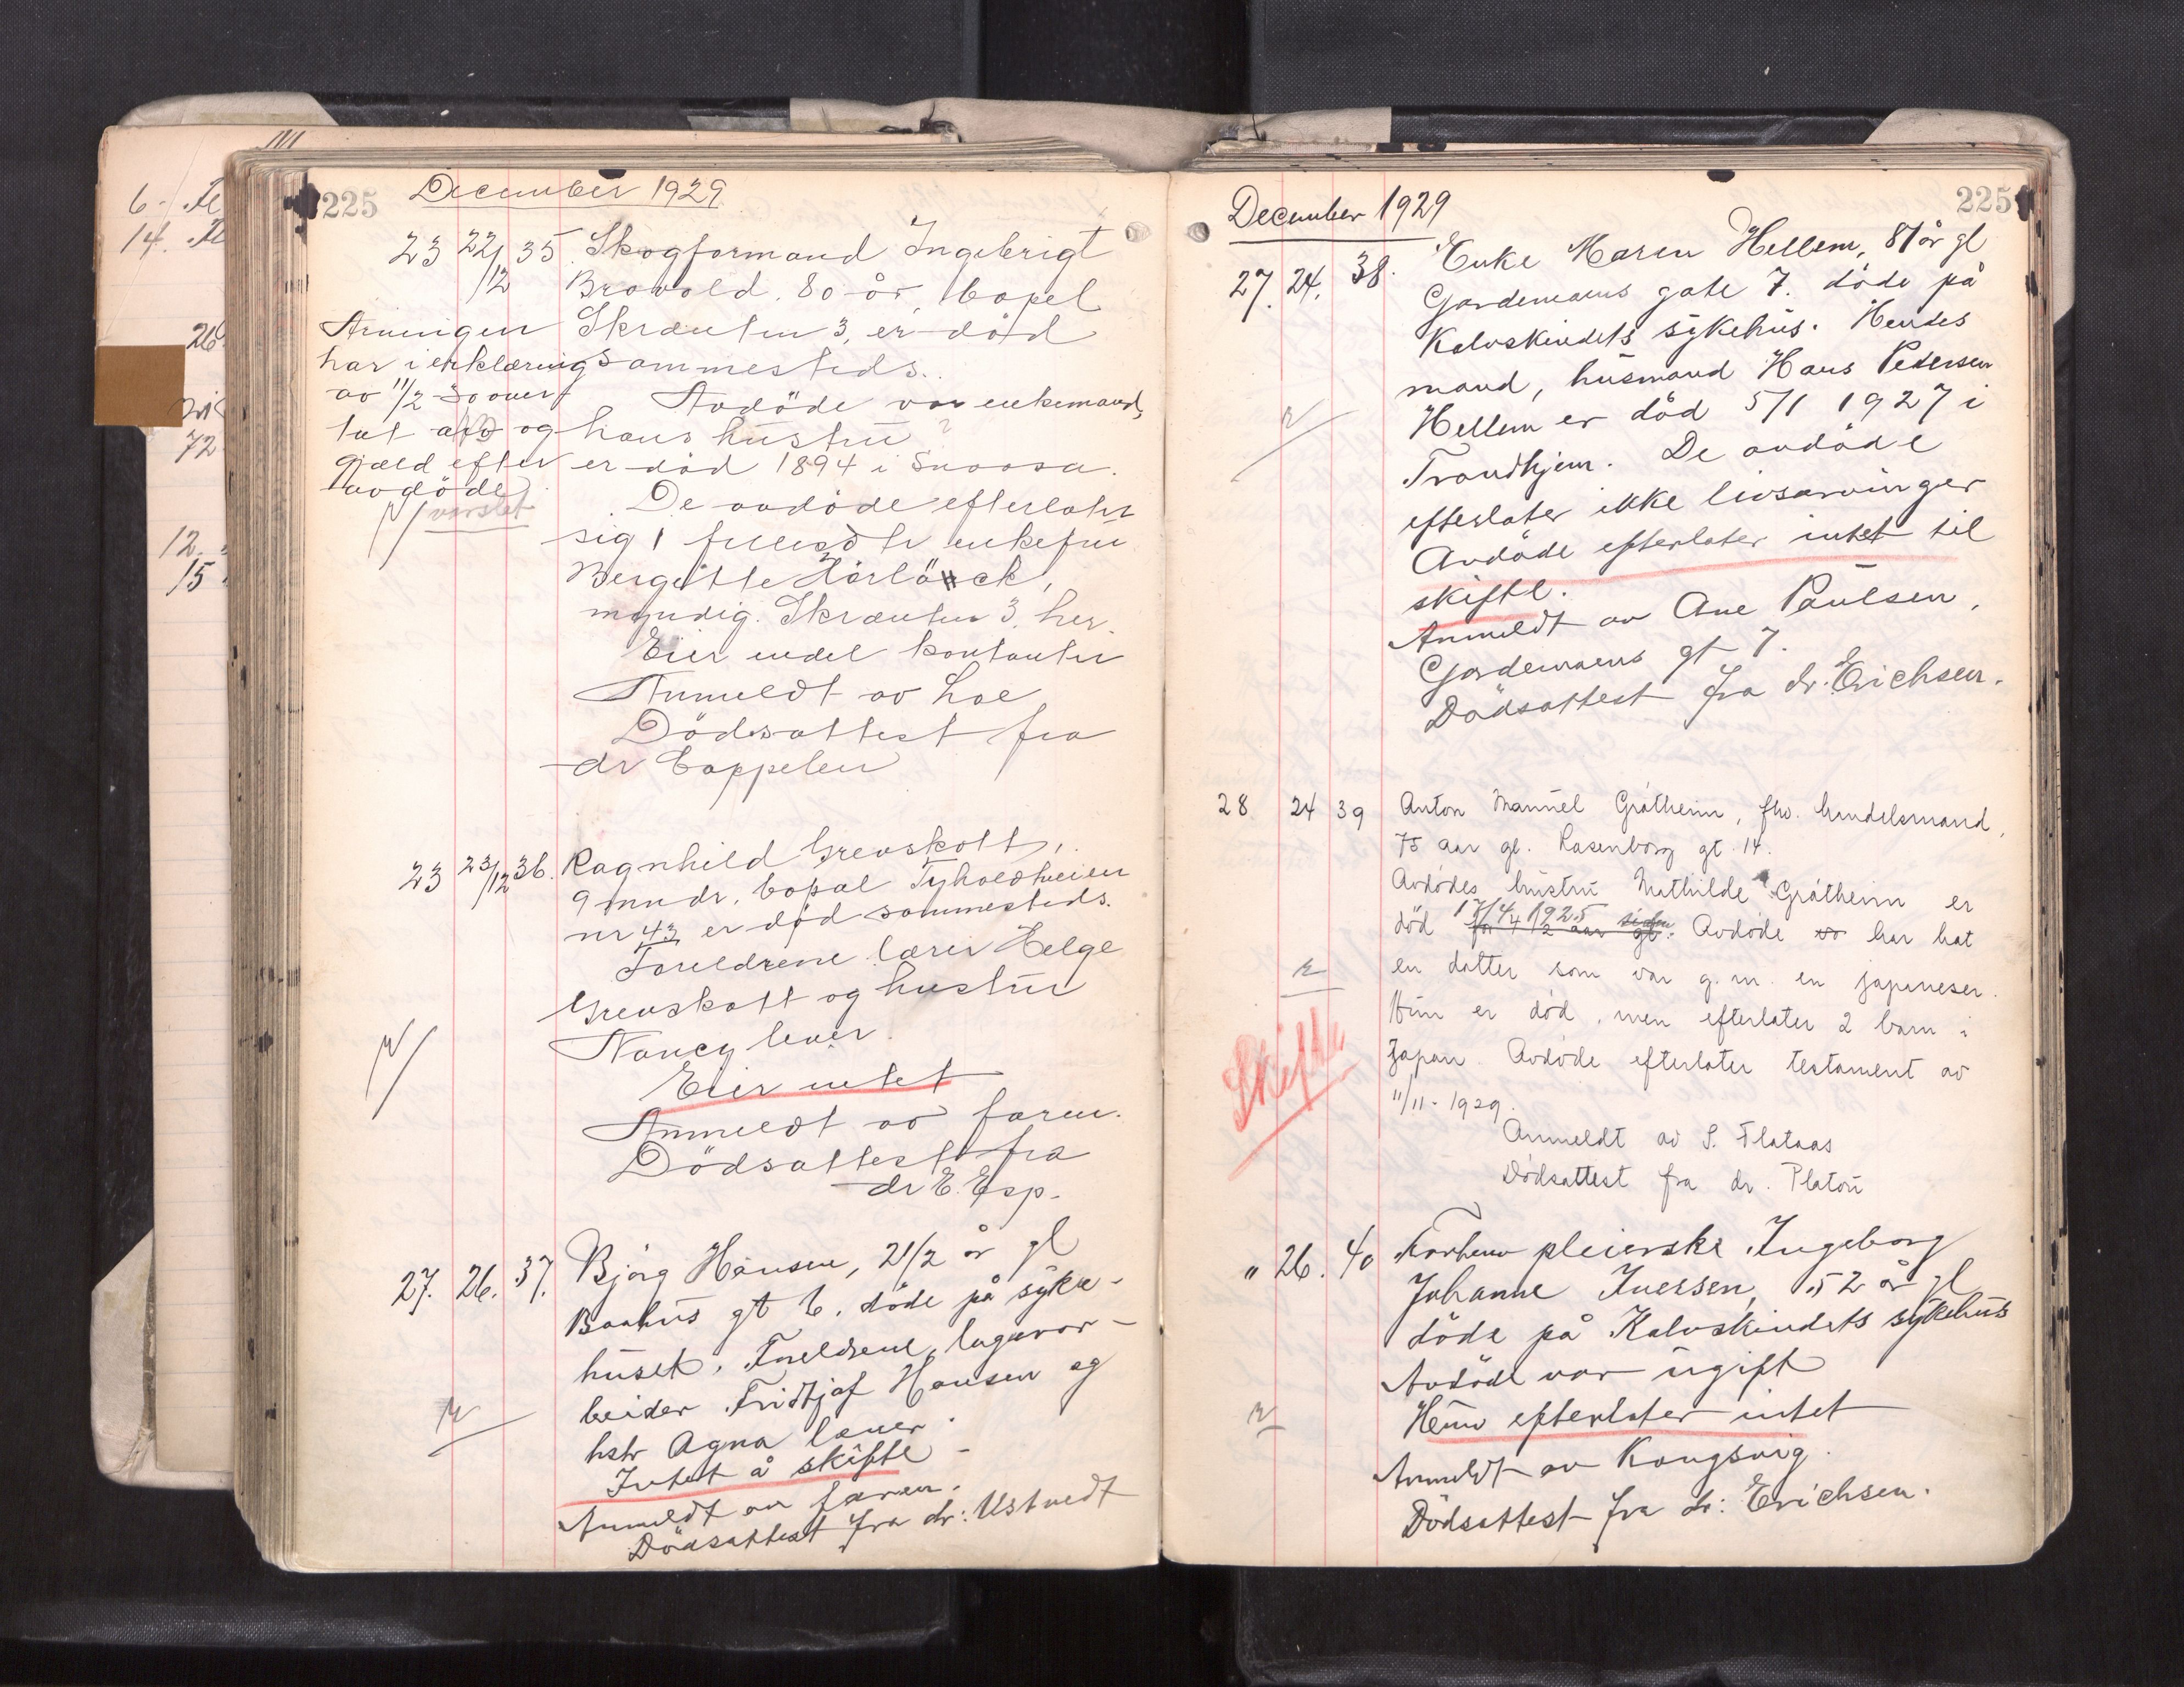 6
14.
26
72
12.
15
225 December 1929
23 22/12 35. Skogformand Ingebrigt
Bravold. 80 år, bopel
Skrænten 3, er död
sammesteds.
Avdöde var enkemand,
hans hustru ?
er död 1894 i Snaasa.
De avdöde efterlater
sig 1 fellesdtr enkefru
Bergitte
myndig. Skrænten 3. her.
Eier endel kontanter
Anmeldt av Lae
Dödsattest fra
dr Cappelen
Arvingen
har i erklæring
av 11/2 30 over-
tat afd og
gjæld efter
avdöde
varslet
23 23/12 36. Ragnhild Grenskott,
9 mndr. bopæl Tyholdtveien
nr 43 er död sammesteds.
Foreldrene lærer Helge
Grenskott og hustru
Nancy lever.
Eier intet
Anmeldt av faren.
Dödsattest fra
dr E. Esp.
27. 26. 37. Björg Hansen, 2 1/2 år gl
Baahus gt 6. döde på syke-
huset. Foreldrene, lagerar-
beider Fridtjof Hansen og
hstr Agna lever.
Intet å skifte -
Anmeldt av faren.
Dödsattest fra dr: Ustvedt
December 1929 225
27. 24. 38. Enke Maren Hellem, 81 år gl
Gardemaens gate 7. döde på
Kalvskindets sykehus. Hendes
mand, husmand Hans Pedersen
Hellem er död 5/1 1927 i
Trondhjem. De avdöde
efterlater ikke livsarvinger
Avdöde efterlater intet til
skifte.
Anmeldt av Ane Paulsen,
Gardemaens gt 7.
Dödsattest fra dr. Erichsen.
28 24 39 Anton Manuel Gråtheim, fhv. handelsmand,
75 aar gl. Rosenborg gt. 14.
Avdödes hustru Mathilde Gråtheim er
död 17/4 1925 for 4 1/2 aar siden gl. Avdöde va har hat
en datter som var g.m. en japaneser.
Hun er död, men efterlater 2 barn i
Japan. Avdöde efterlater testament av
11/11-1929.
Anmeldt av S. Flataas
Dödsattest fra dr. Platou
Skifte
" 26. 40 Forhenv pleierske Ingeborg
Johanne Iversen, 52 år gl
döde på Kalvskindets sykehus
Avdöde var ugift
Hun efterlater intet
Anmeldt av Kongsvig.
Dödsattest fra dr: Erichsen.